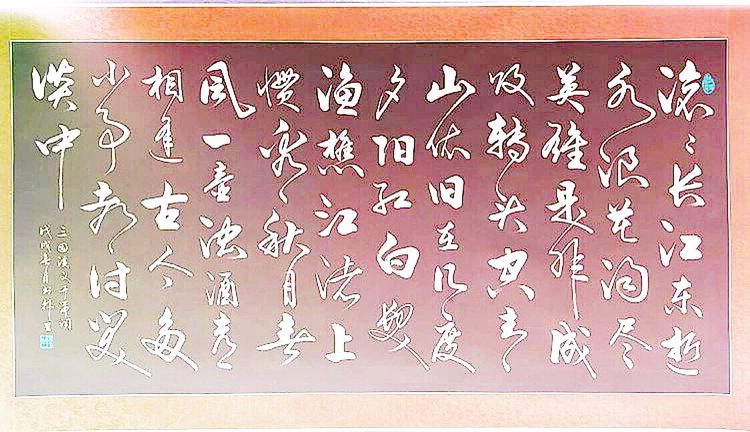 滚〻长江东逝
水浪花淘尽
英雄是非成
败转头空青
山依旧在几度
夕阳红白发
渔樵江渚上
惯看秋月春
风一壶浊酒喜
相逢古今多
少事都付笑
谈中
三国演义开篇词
戊戌年月书